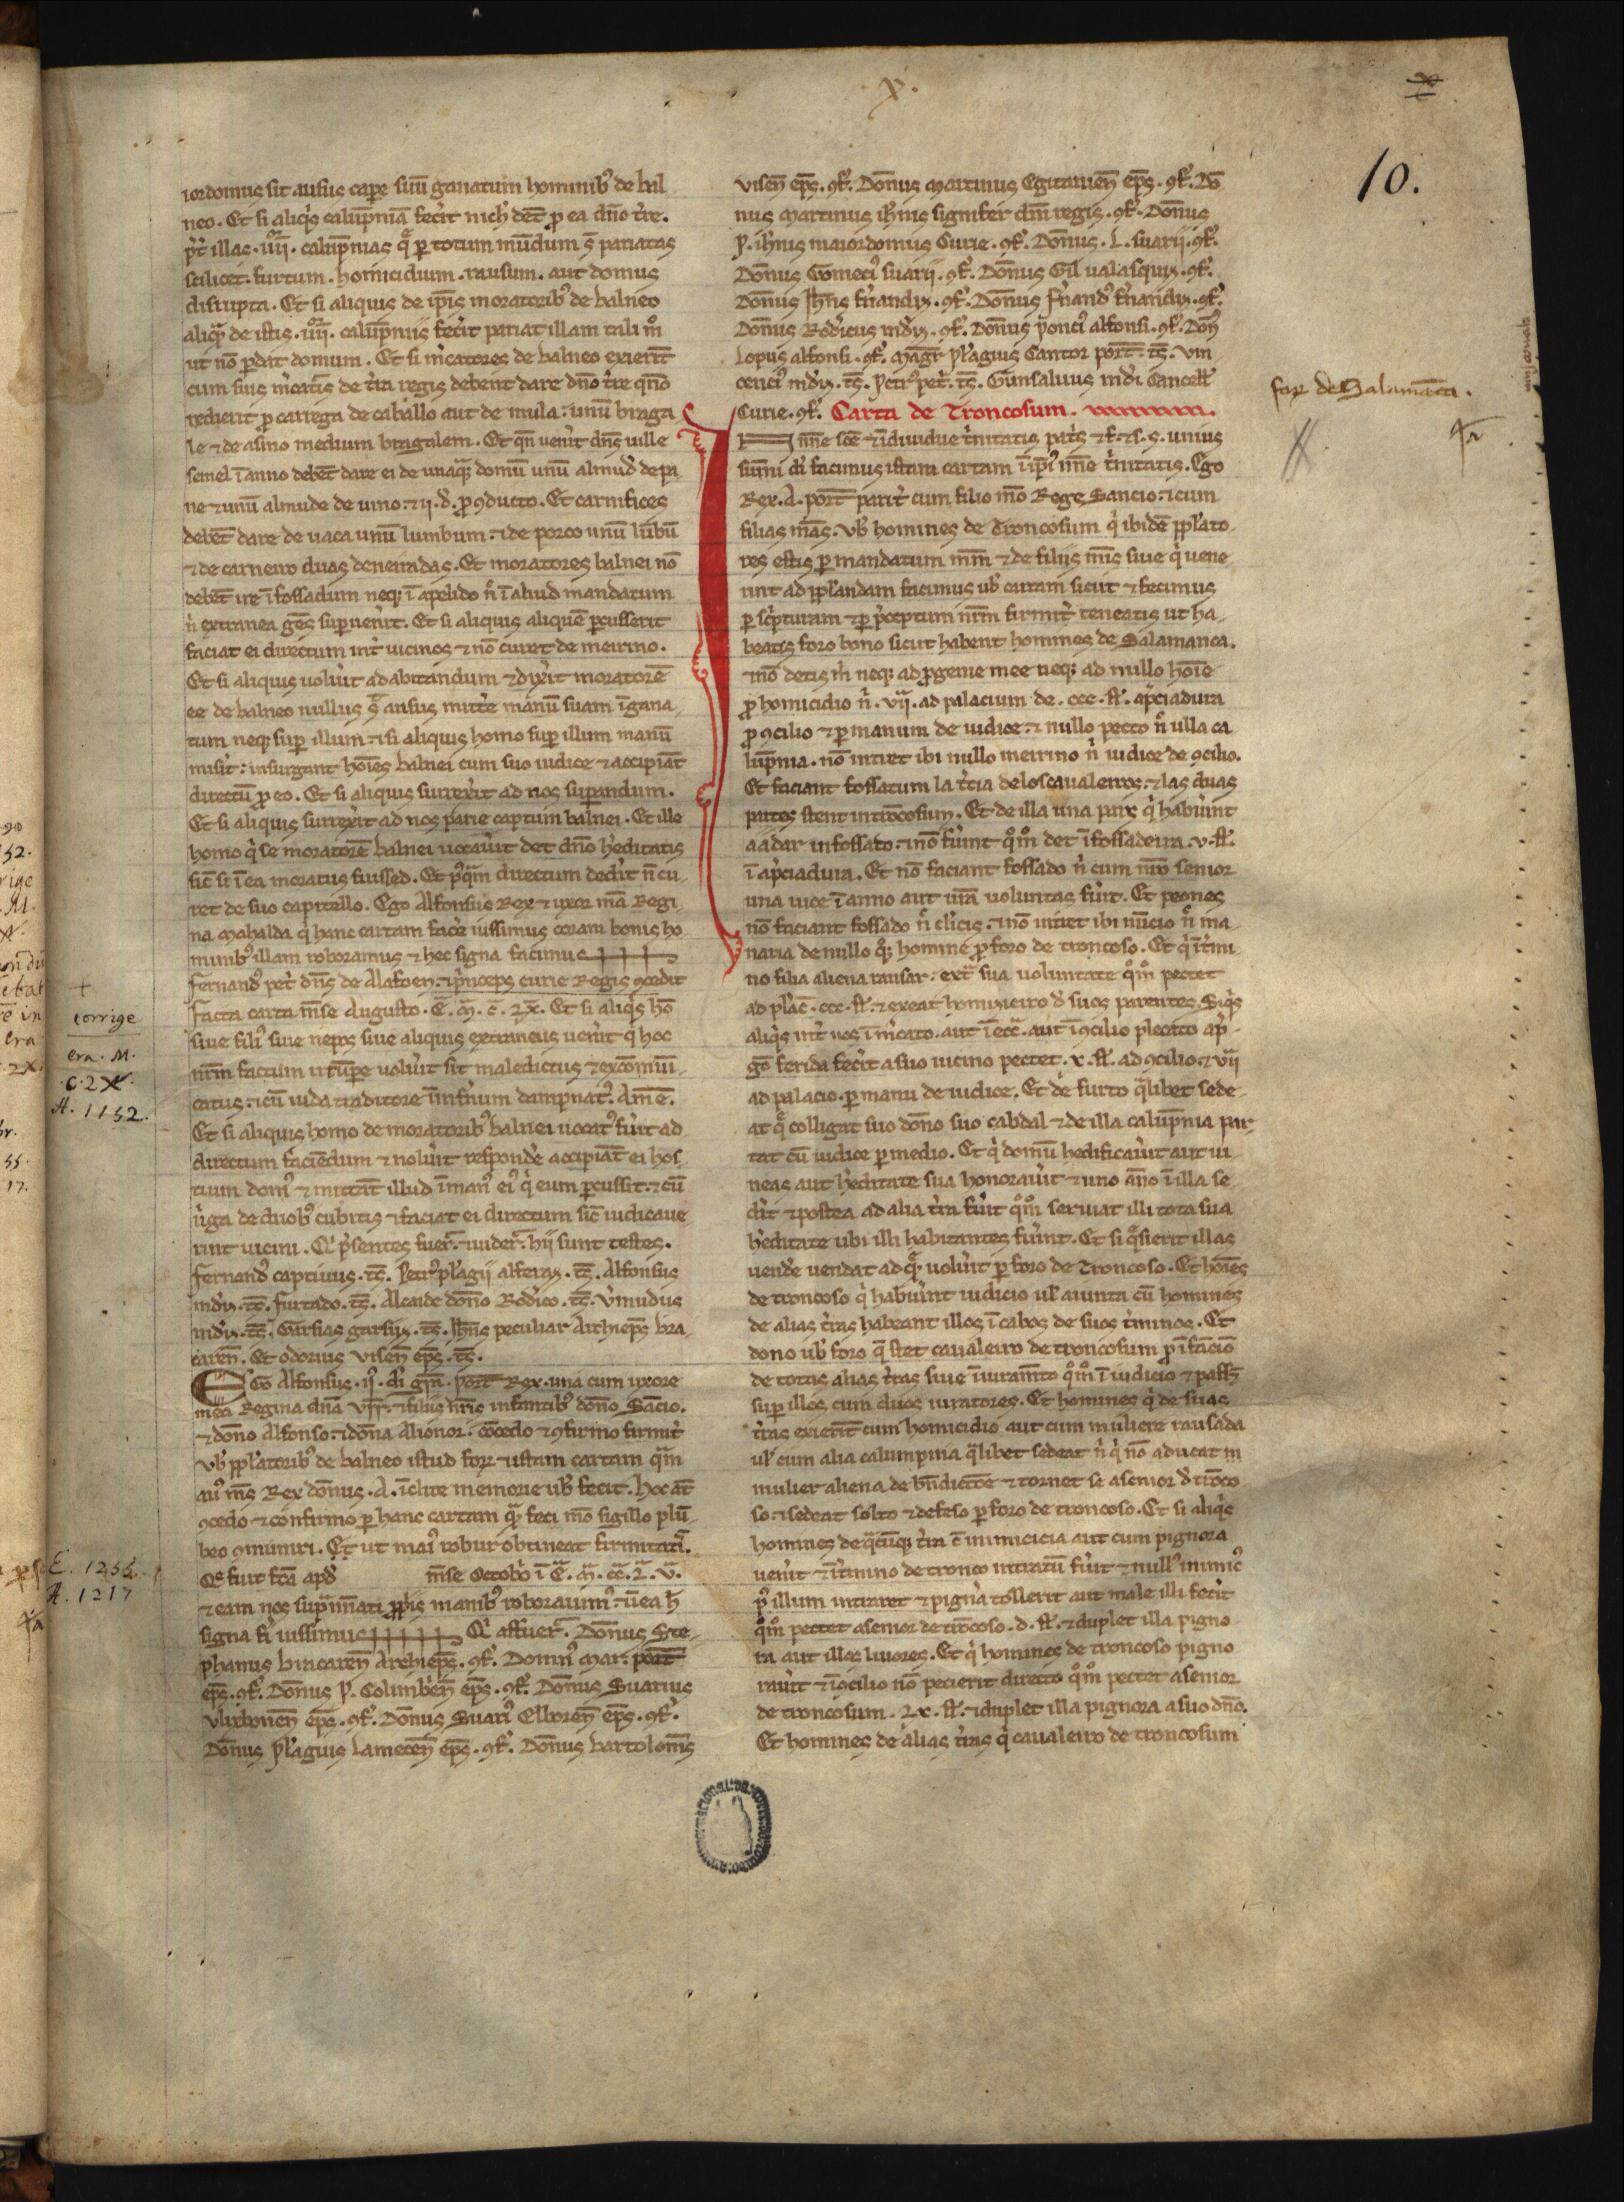 x.
10.
iordomus sit ausus capere suū ganatum hominibꝰ de bal
neo. Et si aliqͥs calūpniā fecͥit nichͥ det ꝓ ea dn̄o tͥre.
p̄t illas .iiii. calūpnias q̄ ꝑ totum mundum s̄ pariatas
scilicet. furtum. homicidium. rausum. aut domus
disrupta. Et si aliquis de ip̄is moratoribꝰ de balneo
aliqͣ de istis .iiii. calūpniis fecͥit pariat illam tali mͦ
ut nō ꝑdat domum. Et si mͥcatores de balneo exierīt
cum suis mͥcatis de tͥra regis debent dare dn̄o tͥre qn̄o
redierit ꝓ carrega de caballo aut de mula: unū braga
le ⁊ de asino medium bragalem. Et qn̄ venͥit dn̄s uille
semel ī anno debēt dare ei de unaqͣꝗ domū unū almud̄ de pa
ne ⁊ unū almude de uino: ⁊ ii. d. ꝓ ꝯducto. Et carnifices
debēt dare de uaca unū lumbum: ⁊ de porco unū lūbū
⁊ de carneiro duas deneiradas. Et moratores balnei nō
debēt ire ī fossadum neqꝫ ī apelido nͥ ī aliud mandatum
nͥ extranea gēs suꝑuenͥit. Et si aliquis aliquē ꝑcusserit
faciat ei directum intͥ uicinos ⁊ nō curet de meirino.
Et si aliquis uolͥuit ad abitandum ⁊ dixͥit moratorē
ee de balneo nullus s̄ ausus mittͥe manū suam ī gana
tum neqꝫ suꝑ illum: ⁊ si aliquis homo suꝑ illum manū
misͥit: insurgant hoīes balnei cum suo iudice ⁊ accipiāt
directū ꝓ eo. Et si aliquis surrexͥit ad nos suꝑandum.
Et si aliquis surrexͥit ad nos parie captum balnei. Et ille
homo qͥ se moratorē balnei uocauͥit det dn̄o hͥeditatis
sic̄ si ī ea moratus fuisset. Et pͥqͣm directum dedͥit n̄ cu
ret de suo capitello. Ego Alfonsus Rex ⁊ uxor m̄a Regi
na mahalda qͥ hanc cartam facͥe iussimus coram bonis ho
minibꝰ illam roboramus ⁊ hec signa facimus
fernandꝰ petͥ dn̄s de Alafoen: ⁊ pͥnceps curie Regis ꝯcedit
facta carta m̄se Augusto. E. M. C. LX. Et si aliqͥs hō
siue filiꝰ siue nepos siue aliquis extraneus uenͥit qͥ hoc
nrm̄ factum irrūpe uoluͥit sit maledictus ⁊ excōmūi
catus: ⁊ cū iuda traditore ī infͥnum dampnatꝰ. Amē.
Et si aliquis homo de moratoribꝰ balnei uocatꝰ fuͥit ad
directum faciēdum ⁊ noluͥit respondͥe accipiāt ei hos
tium domꝰ ⁊ mittāt illud ī manꝰ eiꝰ qͥ eum ꝑcussit: ⁊ cū
uͥga de duobꝰ cubitis ⁊ faciat ei directum sic̄ iudicaue
rint uicini. Qͥ pͥsentes fuerͭ ⁊ uiderͭ: hii sunt testes.
fernandꝰ captiuus. ts̄. Petrꝰ pͥlagii alferaz. ts̄. Alfonsus
mͥdiz. ts̄. furtado. ts̄. Alcaide dōno Rodͥico. ts̄. Vͥmudus
mͥdiz. ts̄. Garsias garsiaz. ts̄. Ihn̄s peculiar Archiep̄s bra
carēn. Et odorius visen̄ ep̄s. ts̄.
Ego Alfonsus. ij. dͥi gͥa. port̄ Rex. una cum uxore
mea Regina dn̄a Vrr. ⁊ filiis nr̄is infantibꝰ dōno Sācio.
⁊ dōno Alfonso: ⁊ dōna Alionor. cōcedo ⁊ ꝯfirmo firmitͥ
vobͥ pplatoribꝰ de balneo istud forꝝ ⁊ istam cartam qͣm
auꝰ m̄s Rex dōmus. A. īclite memorie uobͥ fecit. Hoc āt
ꝯcedo ⁊ confirmo ꝑ hanc cartam qͣ feci m̄o sigillo plū
beo ꝯmuniri. Et ut maiꝰ robur obtineat firmitatͥ.
Qͤ fuit fc̄a apd̄ m̄se Octobͥ ī E. M. CC. L. V.
⁊ eam nos supͣnn̄ati ꝓpͥis manibꝰ roborauimꝰ: ⁊ ī ea h̄
signa fiͥ iussimus Qͥ affuerͭ. Donnus Ste
phanus bracaren̄ Archiep̄s. ꝯf. Donnꝰ Mar. port̄
ep̄s. ꝯf. Donnus P. Colimbͥen̄ ep̄s. ꝯf. Donnus Suarius
vlixbonen̄ ep̄s. ꝯf. Donnus Suarꝰ Elboren̄ ep̄s. ꝯf.
Donnus Pͥlagius Lamecen̄ ep̄s. ꝯf. Donnus bartolom̄s
visen̄ ep̄s. ꝯf. Donnus martinus Egitanien̄ ep̄s. ꝯf. Dō
nus martinus ihn̄is signifer dn̄i regis. ꝯf. Donnus
P. ihn̄is maiordomus Curie. ꝯf. Donnus. L. suarii. ꝯf.
Donnus Gomeciꝰ suarii. ꝯf. Donnus Gil ualasquiz. ꝯf.
Donnus Ihn̄s fͥnandiz. ꝯf. Donnus fͥnandꝰ fͥnandiz. ꝯf.
Donnus Rodͥicus mͥdiz. ꝯf. Donnus ponciꝰ alfonsi. ꝯf. Donꝰ
Lopus alfonsi. ꝯf. Magr̄ pͥlagius Cantor port̄. ts̄. Vin
cenciꝰ mͥdiz. ts̄. Petrꝰ petͥ. ts̄. Gunsaluus mͥdi Cancell̄
Curie. ꝯf. Carta de Troncosum.
In nn̄e sc̄e ⁊ īdiuidue tͥnitatis patͥs ⁊ f. ⁊ s. s. unius
summi dͥi facimus istam cartam ī ip̄iꝰ nn̄e tͥnitatis. Ego
Rex. A. port̄ paritͥ cum filio m̄o Rege Sancio: ⁊ cum
filias m̄as. Vobͥ homines de Troncosum qͥ ibidē pplato
res estis ꝑ mandatum m̄m ⁊ de filiis m̄is siue qͥ uene
rint ad pplandam facimus uobͥ cartam sicut ⁊ fecimus
ꝑ scͥpturam ⁊ ꝑ pͥceptum nrm̄ firmitͥ teneatis ut ha
beatis foro bono sicut habent homines de Salamanca.
⁊ nō detis mͥ neqꝫ ad ꝓgenie mee neqꝫ ad nullo hoīe
ꝓ homicidio nͥ. vii. ad palacium de. ccc. st. apͥciadura
ꝓ ꝯcilio ⁊ ꝑ manum de iudice: ⁊ nullo pecto nͥ ulla ca
lūpnia. nō intret ibi nullo meirino nͥ iudice de ꝯcilio.
Et faciant fossatum la tͥcia de los caualeiros: ⁊ las duas
partes stent in trōcosum. Et de illa una pars qͥ habuͥint
a ādar in fossato: ⁊ nō fuͥint qͦmͦ det ī fossadeira. v. st.
ī apͥciadura. Et nō faciant fossado nͥ cum nr̄o senior
una uice ī anno aut ur̄a uoluntas fuͥit. Et peones
nō faciant fossado nͥ clͥicis: ⁊ nō intret ibi nūcio nͥ ma
naria de nullo qͦꝫ homine ꝓ foro de troncoso. Et qͥ ī tͥmi
no filia aliena rausar: extͣ sua uoluntate qͦmͦ pectet
ad pͥlac̄. ccc. st. ⁊ exeat homizieiro d̄ suos parentes. Siqͥs
aliqͥs intͥ uos ī mͥcato. aut ī ecc̄a. aut ī ꝯcilio plegato apͥ
go ferida fecͥit a suo uicino pectet. x. st. ad ꝯcilio: ⁊ vii
ad palacio. ꝑ manu de iudice. Et de furto qͣlibet sede
at qͥ colligat suo dōno suo cabdal ⁊ de illa calūpnia par
tat cū iudice ꝑ medio. Et qͥ domū hedificauͥit aut ui
neas aut hͥeditate sua honorauͥit ⁊ uno anno ī illa se
dͥit ⁊ postea ad alia tͥra fuͥit qͦmͦ seruiat illi tota sua
hͥeditate ubi illi habitantes fuͥint. Et si qͣsierit illas
uendͥe uendat ad qͣꝫ uoluͥit ꝑ foro de Troncoso. Et hoīes
de troncoso qͥ habuͥint iudicio ul̄ aiunta cū homines
de alias tͥras habeant illos ī cabos de suos tͥminos. Et
dono uobͥ foro qͣ stet caualeiro de troncosum ꝓ īfācion
de totas alias tͥras siue ī iuramͥto qͦmͦ ī iudicio ⁊ pass̄
suꝑ illos cum duos iuratores. Et homines qͥ de suas
tͥras exierīt cum homicidio aut cum muliere rausada
ul̄ cum alia calumpnia qͣlibet sedeat nͥ qͥ nō aducat m̄
mulier aliena de bn̄dictiōe ⁊ tornet se a senior d̄ trōco
so: ⁊ sedeat solto ⁊ defeso ꝑ foro de troncoso. Et si aliqͥs
homines de qͣcūqꝫ tͥra c̄ inimicicia aut cum pignora
uenͥit ⁊ ī tͥmino de tronco intratū fuͥit ⁊ nullꝰ inimicꝰ
pꝰ illum intraret ⁊ pignͥa tollerit aut male illi fecͥit
qͦmͦ pectet a senior de trōcoso. d. st. ⁊ duplet illa pigno
ra aut illos liuores. Et qͥ homines de troncoso pigno
rauͥit ⁊ ī ꝯcilio nō pecierit directo qͦmͦ pectet a senior
de troncosum. LX. st. ⁊ duplet illa pignora a suo dn̄o.
Et homines de alias tͥras qͥ caualeiro de troncosum
forꝝ de Salamāca.
corrige
era. M.
C. LX.
A. 1152.
E. 1255.
A. 1217